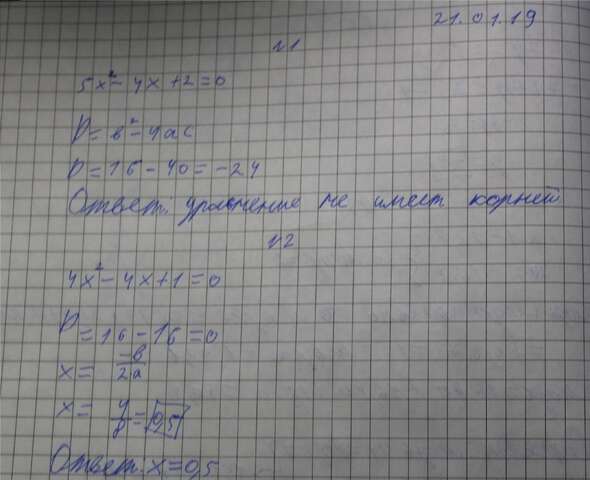 21.01.19
№1
5x²-4x+2=0
D=в²-4ac
D=16-40=-24
Ответ: уравнение не имеет корней
№2
4x²-4x+1=0
D=16-16=0
x= -в/2a
x= 4/8=0,5
Ответ: x=0,5